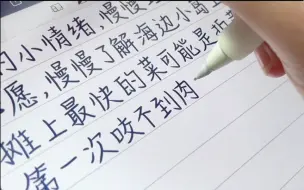 的小情绪,慢慢
愿,慢慢了解海边小
摊上最快的菜可能是
第一次咬不到肉